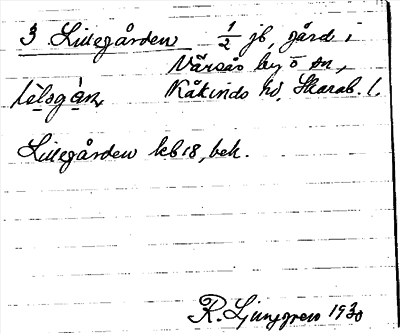 3 Lillegården 1/2 jb, gård i
Värsås by o sn,
Kåkinds hd, Skarab. l.
Lillegården kb 18, bek.
R. Ljunggren 1930